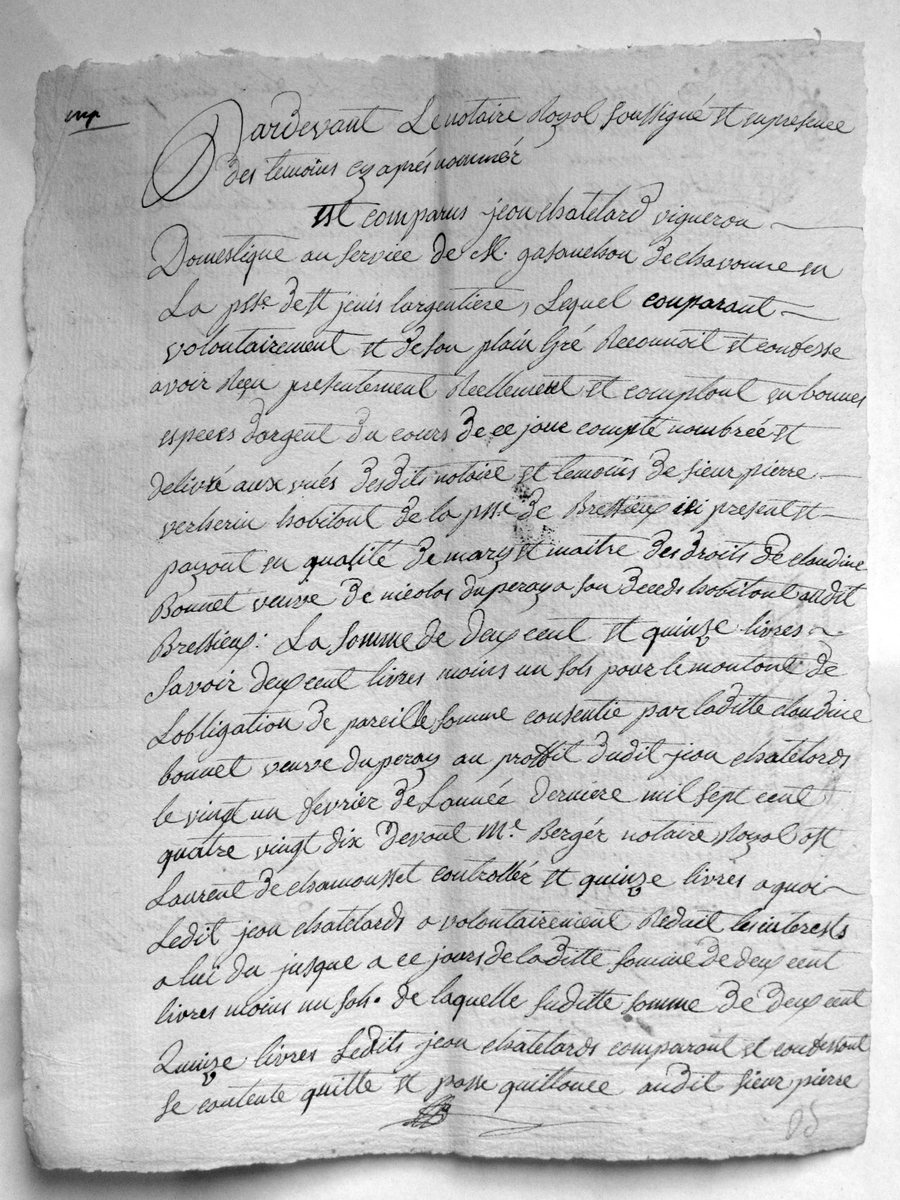 Pardevant Le notaire Royal soussigné et en presence
des temoins cy aprés nommér
Est comparus jean chatelard vigneron
Domestique au service de M. gasanchon de chavonne en
La psse de st jenis largentiere, Lequel comparant
volontairement et de son plain Gré Reconnoit et confesse
avoir Reçu presentement Reellement et comptant en bonnes
especes dargent du cours de ce jour compté nombrée et
delivré aux vués desdits notaire et temoins de sieur pierre
verherin habitant de la psse de Bressieux ici present et
payant en qualité de mary et maitre des droits de claudine
Bonnet veuve de nicolas duperay a son deceds habitant audit
Bressieux: La somme de deux cent et quinze livres
Savoir deux cent livres moins un sols pour le montant de
Lobligation de pareille somme consentie par laditte claudine
bonnet veuve duperay au proffit dudit jean chatelards
le vingt un fevrier de Lannée derniere mil sept cent
quatre vingt dix devant Me Bergér notaire Royal a st
Laurent de chamousset controllér et quinze livres a quoi
Ledit jean chatelards a volontairement Reduit les interests
a lui du jusque a ce jours de laditte somme de deux cent
livres moins un sols. de laquelle suditte somme de deux cent
Quinze livres Ledits jean chatelards comparant et confessant
se contente quitte et passe quittance audit sieur pierre